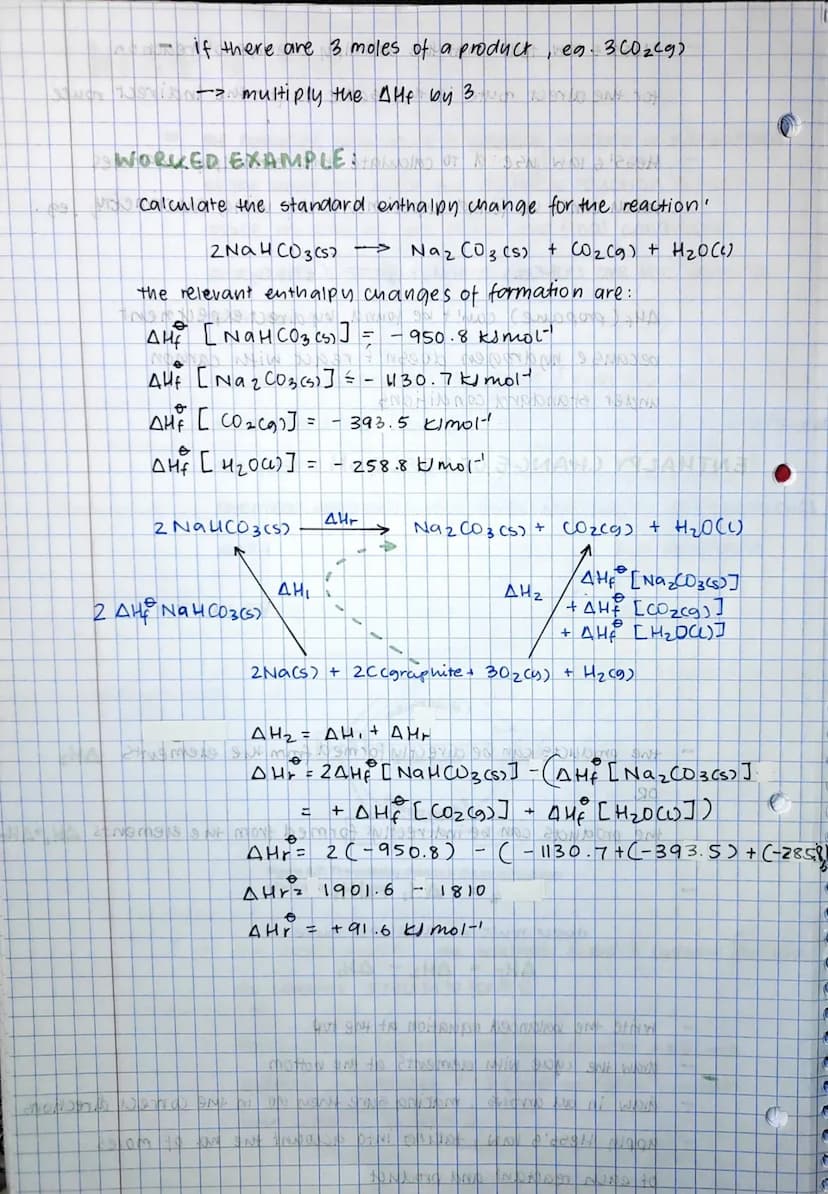 - if there are 3 moles of a product, eg. 3CO2(g)
→ multiply the ΔHf by 3
WORKED EXAMPLE:
Calculate the standard enthalpy change for the reaction:
2NaHCO3(s) → Na2CO3(s) + CO2(g) + H2O(l)
the relevant enthalpy changes of formation are:
ΔHf⦵ [NaHCO3(s)] = -950.8 kJmol-1
ΔHf⦵ [Na2CO3(s)] = -1130.7 kJmol-1
ΔHf⦵ [CO2(g)] = -393.5 kJmol-1
ΔHf⦵ [H2O(l)] = -258.8 kJmol-1
2NaHCO3(s) ΔHr → Na2CO3(s) + CO2(g) + H2O(l)
ΔH1
2ΔHf⦵ NaHCO3(s)
ΔH2
ΔHf⦵ [Na2CO3(s)]
+ ΔHf⦵ [CO2(g)]
+ ΔHf⦵ [H2O(l)]
2Na(s) + 2C(graphite + 3O2(g) + H2(g)
ΔH2 = ΔH1 + ΔHr
ΔHr⦵ = 2ΔHf⦵ [NaHCO3(s)] - (ΔHf⦵ [Na2CO3(s)]
= + ΔHf⦵ [CO2(g)] + ΔHf⦵ [H2O(l)])
ΔHr⦵ = 2(-950.8) - (-1130.7+(-393.5)+(-285.8)
ΔHr⦵ = 1901.6 - 1810
ΔHr⦵ = +91.6 kJmol-1